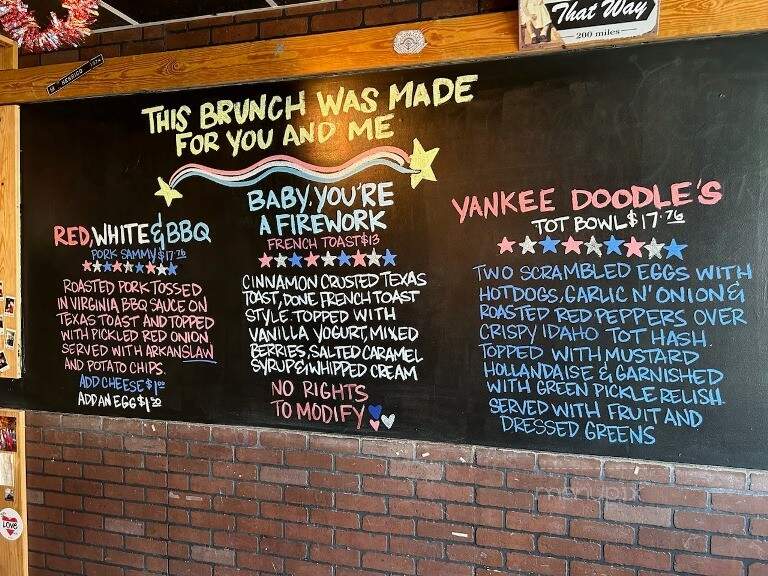 That Way
200 miles
HENRICO 1974
THIS BRUNCH WAS MADE
FOR YOU AND ME
RED, WHITE & BBQ
PORK SAMMY $17.76
ROASTED PORK TOSSED
IN VIRGINIA BBQ SAUCE ON
TEXAS TOAST AND TOPPED
WITH PICKLED RED ONION
SERVED WITH ARKANSLAW
AND POTATO CHIPS.
ADD CHEESE $1.00
ADD AN EGG $1.50
BABY, YOU'RE
A FIREWORK
FRENCH TOAST $13
CINNAMON CRUSTED TEXAS
TOAST, DONE FRENCH TOAST
STYLE. TOPPED WITH
VANILLA YOGURT, MIXED
BERRIES, SALTED CARAMEL
SYRUP & WHIPPED CREAM
NO RIGHTS
TO MODIFY
YANKEE DOODLE'S
TOT BOWL $17.76
TWO SCRAMBLED EGGS WITH
HOTDOGS, GARLIC N' ONION &
ROASTED RED PEPPERS OVER
CRISPY IDAHO TOT HASH.
TOPPED WITH MUSTARD
HOLLANDAISE & GARNISHED
WITH GREEN PICKLE RELISH.
SERVED WITH FRUIT AND
DRESSED GREENS
LOVE
menupix